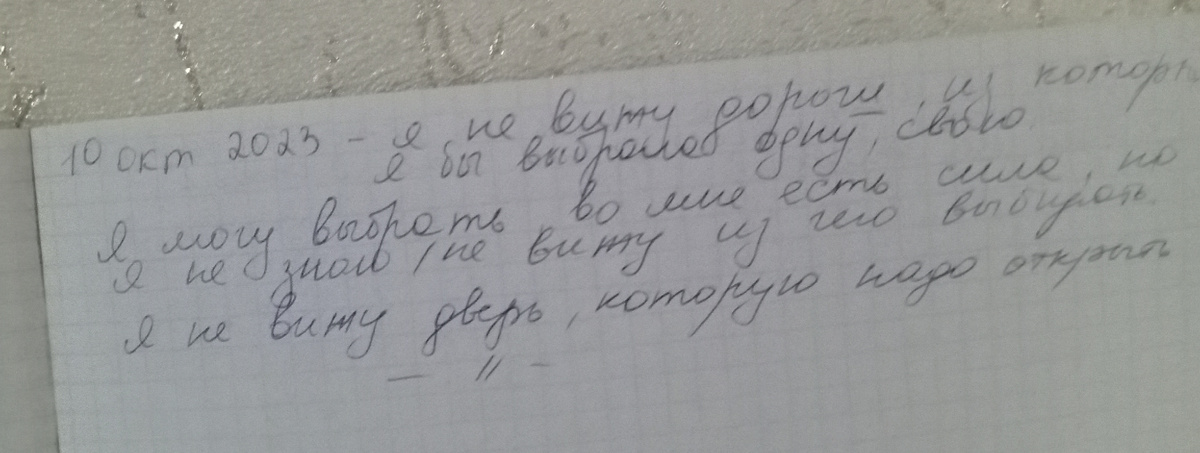 10 окт 2023 - я не вижу дороги, из котор
я бы выбрала одну, свою.
Я могу выбрать во мне есть сила, но
я не знаю / не вижу из чего выбирать.
Я не вижу дверь, которую надо открыть
— " —